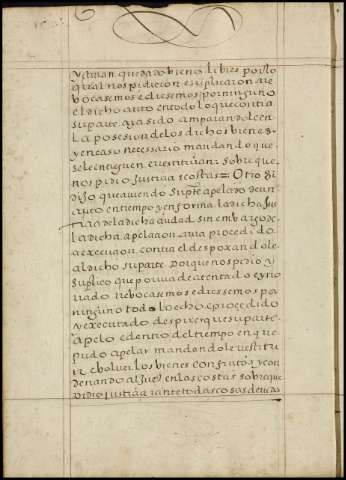 y avian quedado bieno libres por lo
qual nos pidieron e suplicaron Re
bocasemos e diesemos por ninguno
el dicho auto en todo lo que contra
su parte avia sido amparandole en
la posesion de los dichos bienes
y en caso necessario mandando que
se le entreguen e restituian sobre que
nos pidio Justicia e costas = Otro si
dijo que aviendo su parte apelado de un
auto en tiempo y en forma la dicha Jus
ticia de la dicha ciudad sin embargo de
la dicha apelacion avia procedido
a execucion contra el despoxandole
al dicho su parte Por que nos pedio y
suplico que por via de atentado e yno
vado rebocasemos e diesemos por
ninguno todo lo echo e procedido
y executado despues que su parte
apelo e dentro del tiempo en que
pudo apelar mandandole restitu
ir e bolver los bienes con frutos y con
denando al Juez en las costas sobre que
Pidio Justicia y ante todas cosas devido